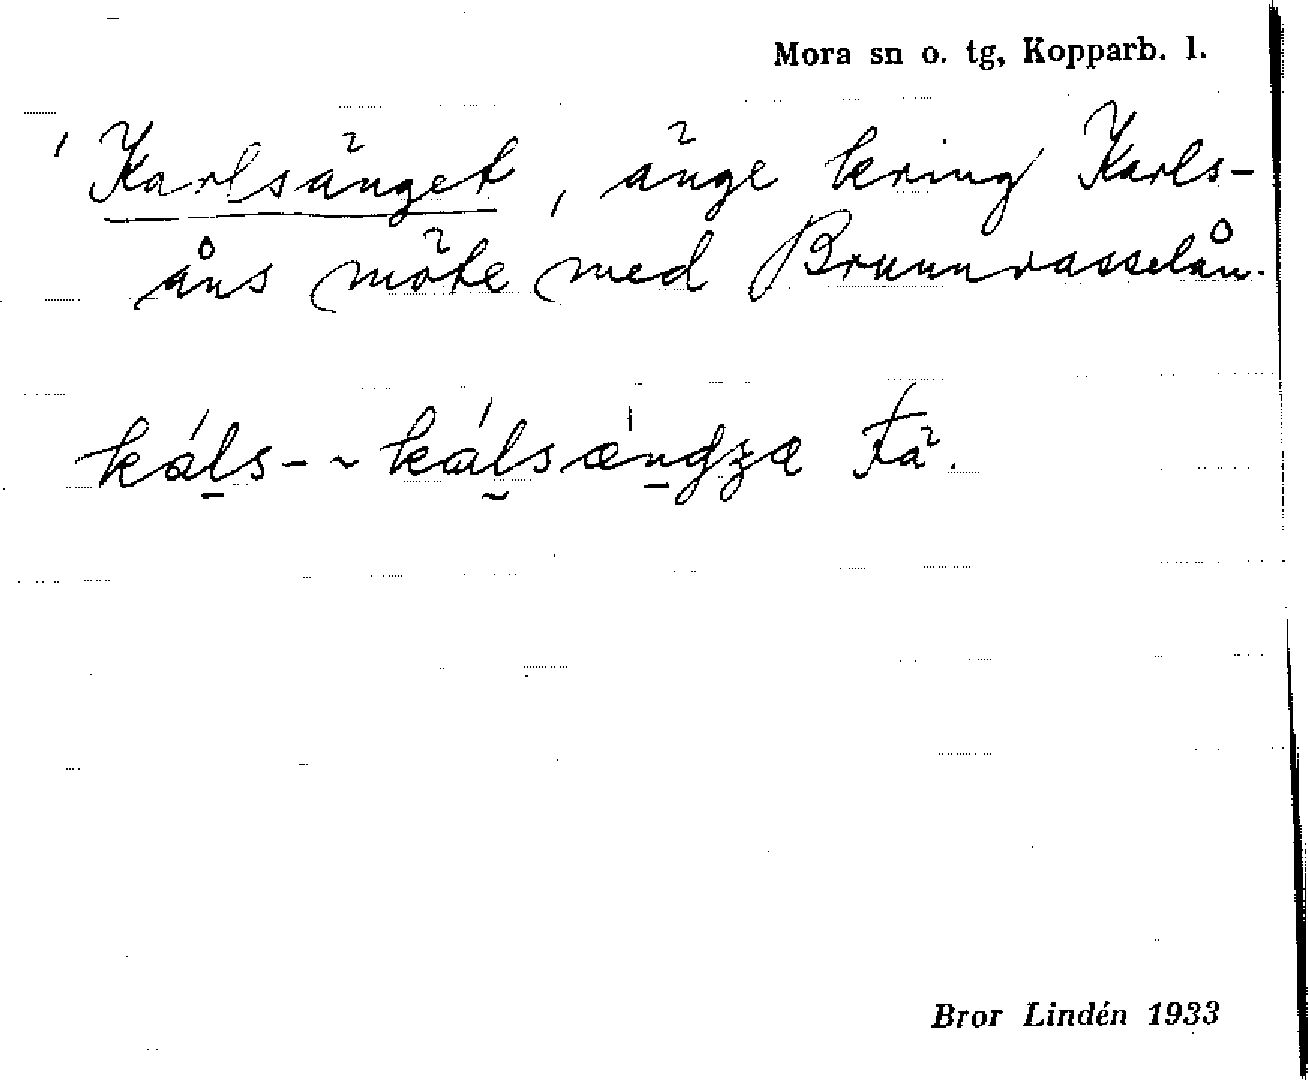 Mora sn o. tg, Kopparb. l.
' Karlsänget, änge kring Karls-
åns möte med Brunnvasselån.
káls- ~ kálsængʒa Fä.
Bror Lindén 1933